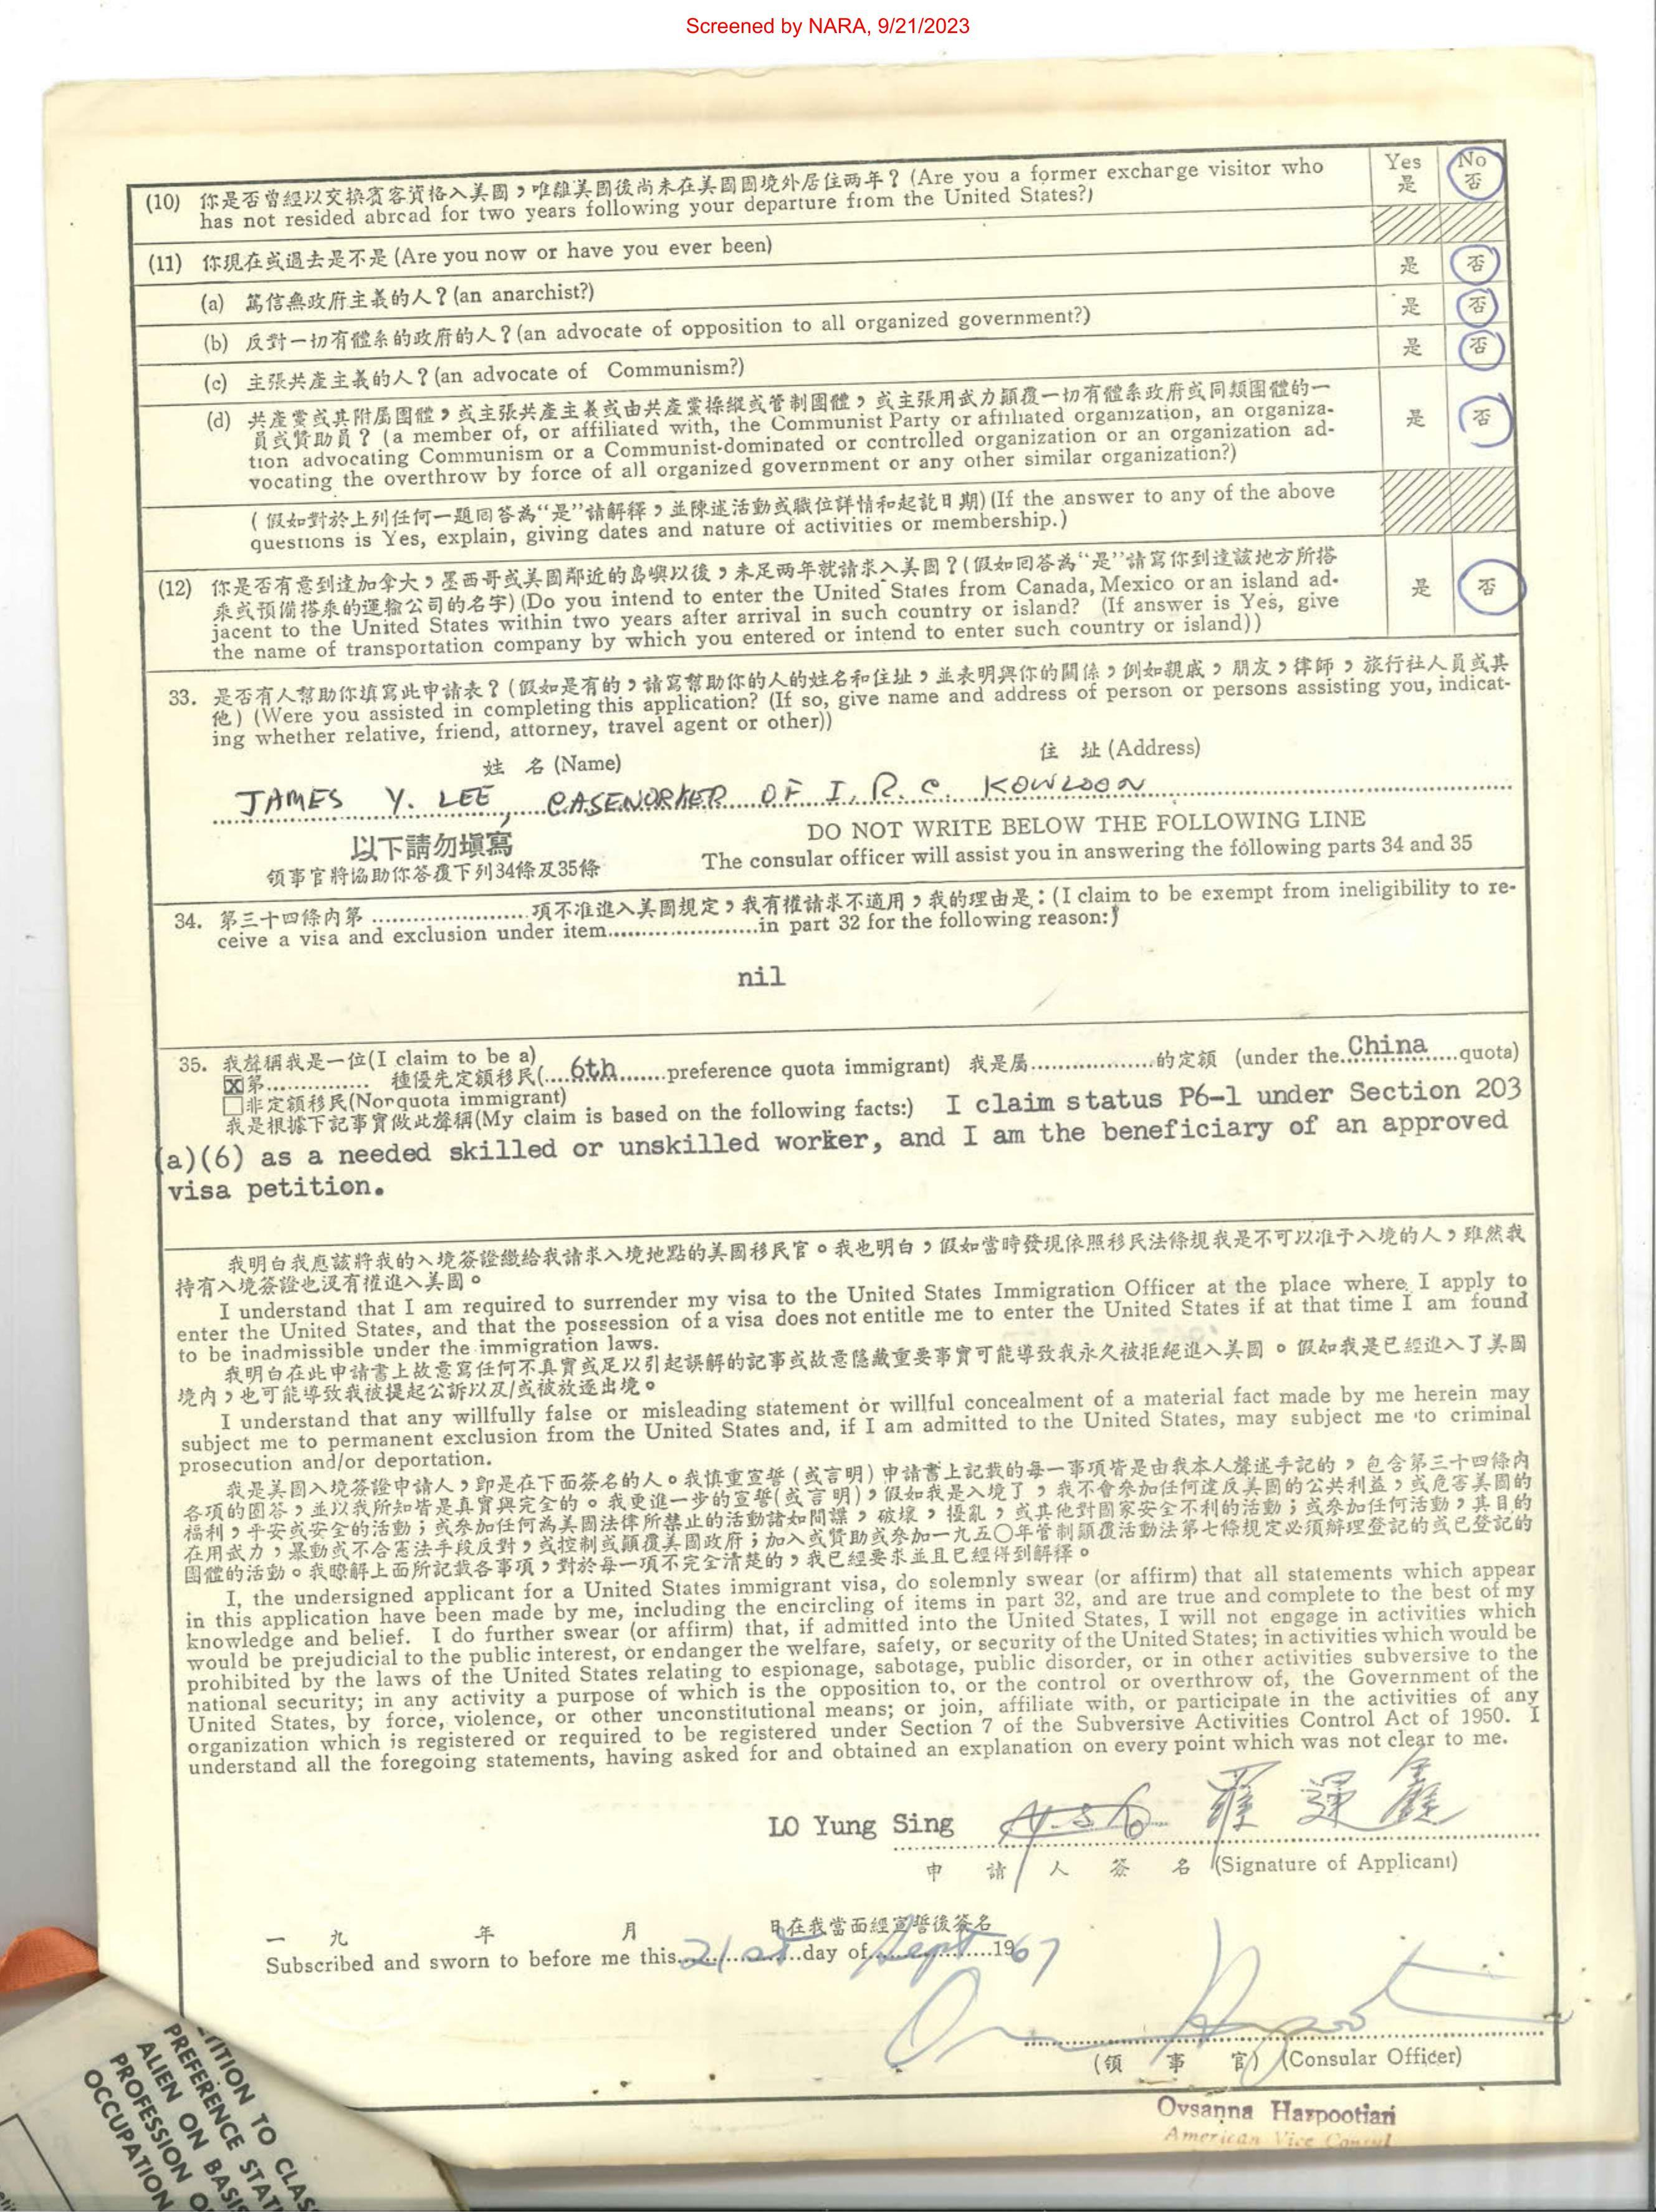 Screened by NARA, 9/21/2023
(10) 你是否曾經以交換賓客資格入美國，唯離美國後尚未在美國國境外居住两年？(Are you a former exchange visitor who
has not resided abroad for two years following your departure from the United States?)
Yes No
是 否
(11) 你現在或過去是不是 (Are you now or have you ever been)
(a) 篤信無政府主義的人？(an anarchist?) 是 否
(b) 反對一切有體系的政府的人？(an advocate of opposition to all organized government?) 是 否
(c) 主張共產主義的人？(an advocate of Communism?) 是 否
(d) 共產黨或其附屬團體，或主張共產主義或由共產黨操縱或管制團體，或主張用武力顛覆一切有體系政府或同類團體的一
員或贊助員？(a member of, or affiliated with, the Communist Party or affiliated organization, an organiza-
tion advocating Communism or a Communist-dominated or controlled organization or an organization ad-
vocating the overthrow by force of all organized government or any other similar organization?)
是 否
(假如對於上列任何一題回答為“是”請解釋，並陳述活動或職位詳情和起訖日期) (If the answer to any of the above
questions is Yes, explain, giving dates and nature of activities or membership.)
(12) 你是否有意到達加拿大，墨西哥或美國鄰近的島嶼以後，未足两年就請求入美國？(假如回答為“是”請寫你到達該地方所搭
乘或預備搭乘的運輸公司的名字) (Do you intend to enter the United States from Canada, Mexico or an island ad-
jacent to the United States within two years after arrival in such country or island? (If answer is Yes, give
the name of transportation company by which you entered or intend to enter such country or island))
是 否
33. 是否有人幫助你填寫此申請表？(假如是有的，請寫幫助你的人的姓名和住址，並表明與你的關係，例如親戚，朋友，律師，旅行社人員或其
他) (Were you assisted in completing this application? (If so, give name and address of person or persons assisting you, indicat-
ing whether relative, friend, attorney, travel agent or other))
姓 名 (Name) 住 址 (Address)
JAMES Y. LEE, CASEWORKER OF I. R. C. KOWLOON
以下請勿塡寫 DO NOT WRITE BELOW THE FOLLOWING LINE
領事官將協助你答覆下列34條及35條 The consular officer will assist you in answering the following parts 34 and 35
34. 第三十四條內第 ........ 項不准進入美國規定，我有權請求不適用，我的理由是：(I claim to be exempt from ineligibility to re-
ceive a visa and exclusion under item........in part 32 for the following reason:)
nil
35. 我聲稱我是一位(I claim to be a)
☒第........ 種優先定額移民(....6th....preference quota immigrant) 我是屬........的定額 (under the..China..quota)
☐非定額移民(Nonquota immigrant)
我是根據下記事實做此聲稱(My claim is based on the following facts:) I claim status P6-1 under Section 203
(a)(6) as a needed skilled or unskilled worker, and I am the beneficiary of an approved
visa petition.
我明白我應該將我的入境簽證繳給我請求入境地點的美國移民官。我也明白，假如當時發現依照移民法條規我是不可以准于入境的人，雖然我
持有入境簽證也沒有權進入美國。
I understand that I am required to surrender my visa to the United States Immigration Officer at the place where I apply to
enter the United States, and that the possession of a visa does not entitle me to enter the United States if at that time I am found
to be inadmissible under the immigration laws.
我明白在此申請書上故意寫任何不真實或足以引起誤解的記事或故意隱藏重要事實可能導致我永久被拒絕進入美國。假如我是已經進入了美國
境內，也可能導致我被提起公訴以及/或被放逐出境。
I understand that any willfully false or misleading statement or willful concealment of a material fact made by me herein may
subject me to permanent exclusion from the United States and, if I am admitted to the United States, may subject me to criminal
prosecution and/or deportation.
我是美國入境簽證申請人，即是在下面簽名的人。我慎重宣誓(或言明)申請書上記載的每一事項皆是由我本人聲述手記的，包含第三十四條內
各項的圈答，並以我所知皆是真實與完全的。我更進一步的宣誓(或言明)，假如我是入境了，我不會參加任何違反美國的公共利益，或危害美國的
福利，平安或安全的活動；或參加任何為美國法律所禁止的活動諸如間諜，破壞，擾亂，或其他對國家安全不利的活動；或參加任何活動，其目的
在用武力，暴動或不合憲法手段反對，或控制或顛覆美國政府；加入或贊助或參加一九五〇年管制顛覆活動法第七條規定必須辦理登記的或已登記的
團體的活動。我瞭解上面所記載各事項，對於每一項不完全清楚的，我已經要求並且已經得到解釋。
I, the undersigned applicant for a United States immigrant visa, do solemnly swear (or affirm) that all statements which appear
in this application have been made by me, including the encircling of items in part 32, and are true and complete to the best of my
knowledge and belief. I do further swear (or affirm) that, if admitted into the United States, I will not engage in activities which
would be prejudicial to the public interest, or endanger the welfare, safety, or security of the United States; in activities which would be
prohibited by the laws of the United States relating to espionage, sabotage, public disorder, or in other activities subversive to the
national security; in any activity a purpose of which is the opposition to, or the control or overthrow of, the Government of the
United States, by force, violence, or other unconstitutional means; or join, affiliate with, or participate in the activities of any
organization which is registered or required to be registered under Section 7 of the Subversive Activities Control Act of 1950. I
understand all the foregoing statements, having asked for and obtained an explanation on every point which was not clear to me.
LO Yung Sing 羅運
申 請 人 簽 名 (Signature of Applicant)
一 九 年 月 日在我當面經宣誓後簽名
Subscribed and sworn to before me this..21st..day of..Sept..1967
(領 事 官) (Consular Officer)
Ovsanna Harpootian
American Vice Consul
TITION TO CLAS
PREFERENCE STAT
ALIEN ON BASIS
PROFESSION O
OCCUPATION